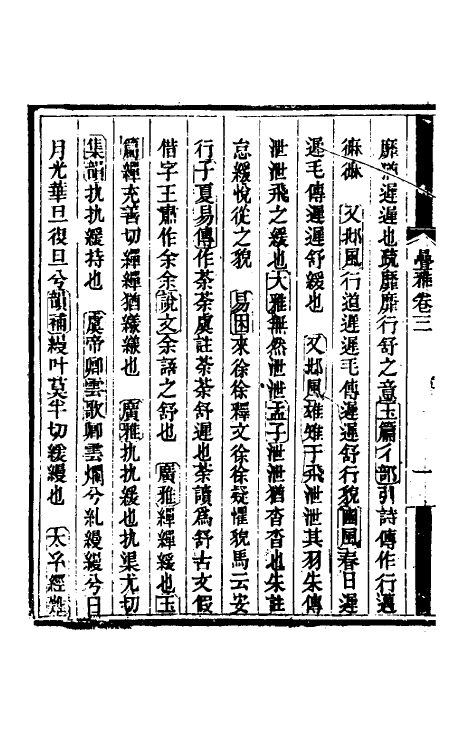 疊雅卷三
靡猶遲遲也疏靡靡行舒之意玉篇彳部引詩傳作行邁
𢓡𢓡　又邶風行道遲遲毛傳遲遲舒行貌豳風春日遲
遲毛傳遲遲舒緩也　又邶風雄雉于飛泄泄其羽朱傳
泄泄飛之緩也大雅無然泄泄孟子泄泄猶沓沓也朱註
怠緩悅從之貌　易困來徐徐釋文徐徐疑懼貌馬云安
行子夏易傳作荼荼虞註荼荼舒遲也荼讀爲舒古文假
借字王肅作余余說文余語之舒也　廣雅繟繟緩也玉
篇繟充善切繟繟猶緩緩也　廣雅执执緩也执渠尤切
集韻执执緩持也　虞帝卿雲歌卿雲爛兮糺縵縵兮日
月光華旦復旦兮韻補縵叶莫半切緩縵也　太平經難